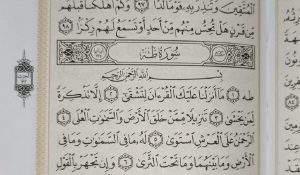 ٱلْمُتَّقِينَ وَتُنذِرَ بِهِۦ قَوْمًا لُّدًّا ٩٧ وَكَمْ أَهْلَكْنَا قَبْلَهُم
مِّن قَرْنٍ هَلْ تُحِسُّ مِنْهُم مِّنْ أَحَدٍ أَوْ تَسْمَعُ لَهُمْ رِكْزًا ٩٨
سُورَةُ طه
بِسْمِ ٱللَّهِ ٱلرَّحْمَٰنِ ٱلرَّحِيمِ
طه ١ مَآ أَنزَلْنَا عَلَيْكَ ٱلْقُرْءَانَ لِتَشْقَىٰٓ ٢ إِلَّا تَذْكِرَةً
لِّمَن يَخْشَىٰ ٣ تَنزِيلًا مِّمَّنْ خَلَقَ ٱلْأَرْضَ وَٱلسَّمَٰوَٰتِ ٱلْعُلَى ٤
ٱلرَّحْمَٰنُ عَلَى ٱلْعَرْشِ ٱسْتَوَىٰ ٥ لَهُۥ مَا فِى ٱلسَّمَٰوَٰتِ وَمَا فِى
ٱلْأَرْضِ وَمَا بَيْنَهُمَا وَمَا تَحْتَ ٱلثَّرَىٰ ٦ وَإِن تَجْهَرْ بِٱلْقَوْلِ